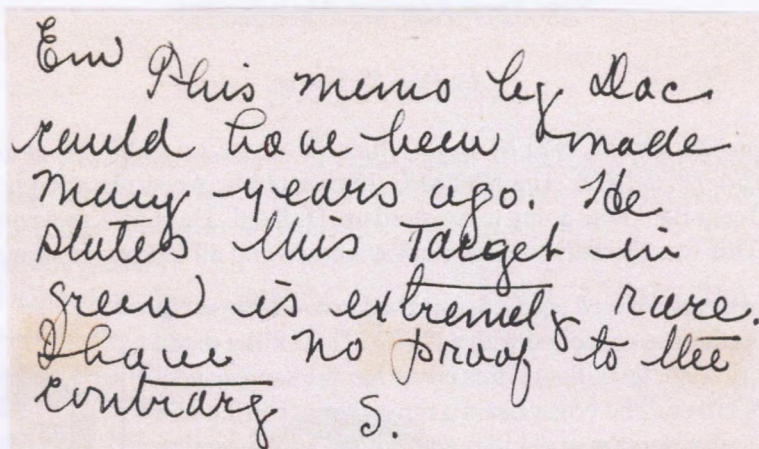 Em
This memo by Doc
could have been made
many years ago. He
states this Target in
green is extremely rare.
I have no proof to the
contrary S.